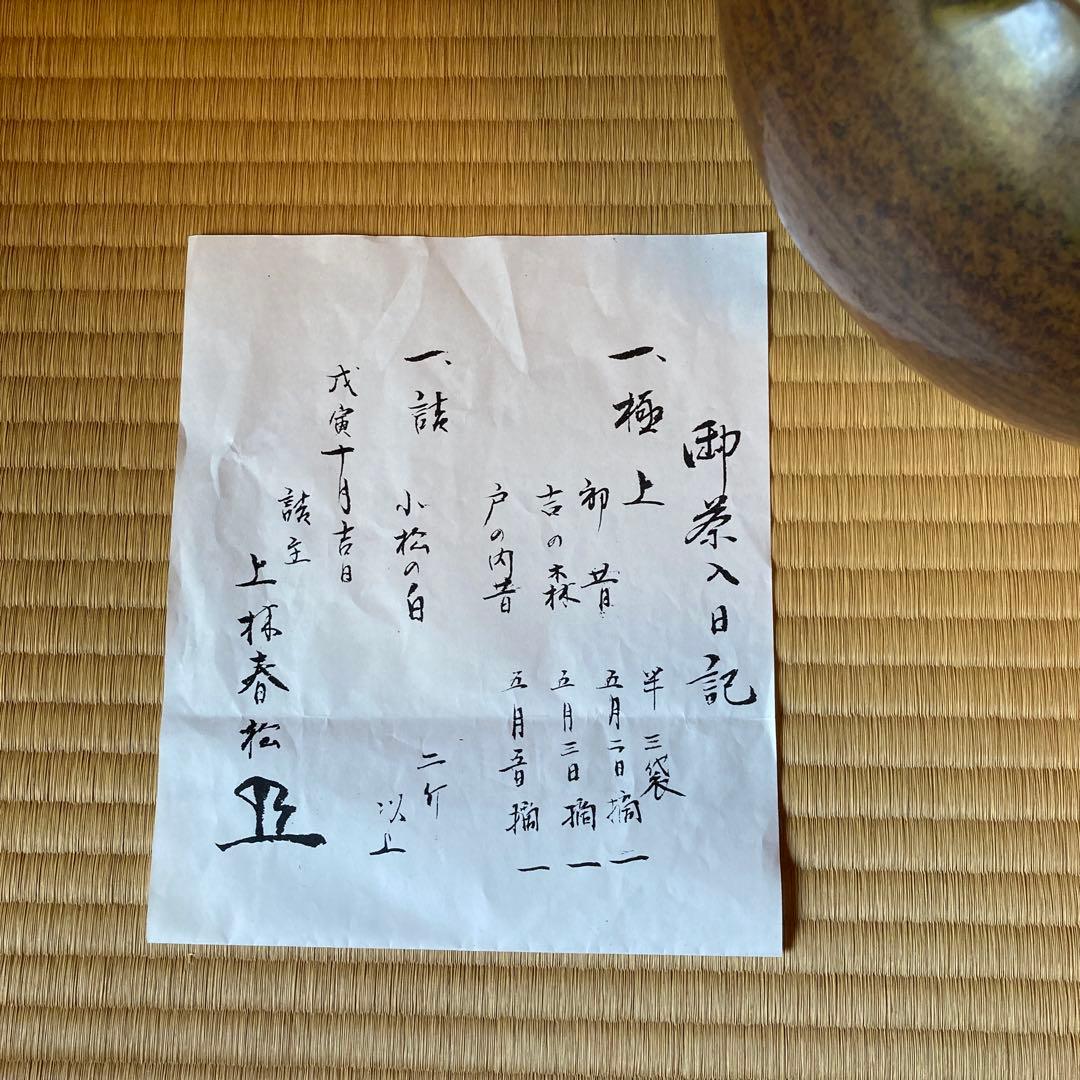 御茶入日記
一、極上 半三袋
初昔 五月二日摘 一
吉の森 五月三日摘 一
戸の内昔 五月五日摘 一
一、詰 小松の白 二斤
以上
戊寅十月吉日
詰主
上林春松